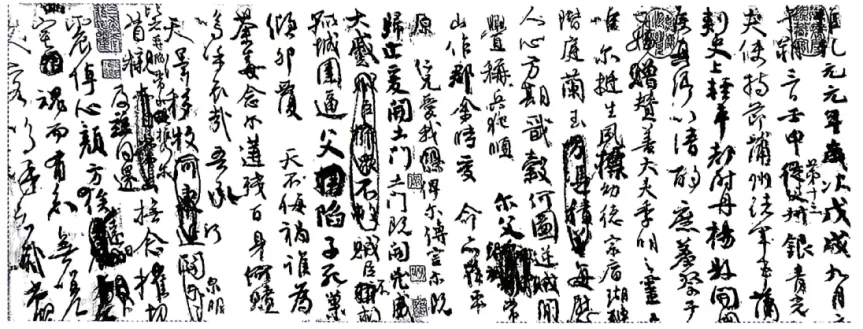 維乾元元年歲次戊戌九月
午朔三日壬申第十三從父銀青光
夫使持節蒲州諸軍事蒲
刺史上輕車都尉丹楊縣開國
侯真卿以清酌庶羞祭于
亡姪贈贊善大夫季明之靈
惟爾挺生夙標幼德宗廟瑚璉
階庭蘭玉每慰
人心方期戩穀何圖逆賊閒
釁稱兵犯順爾父竭誠常
山作郡余時受命亦在平
原仁兄愛我俾爾傳言爾既
歸止爰開土門土門既開凶威
大蹙賊臣不救
孤城圍逼父陷子死巢
傾卵覆天不悔禍誰為
荼毒念爾遘殘百身何贖
嗚呼哀哉吾承
天澤移牧河關泉明
比者再陷常山攜爾
首櫬及茲同還撫念摧切
震悼心顏方俟遠日
宅魂而有知無嗟
久客嗚呼哀哉尚饗